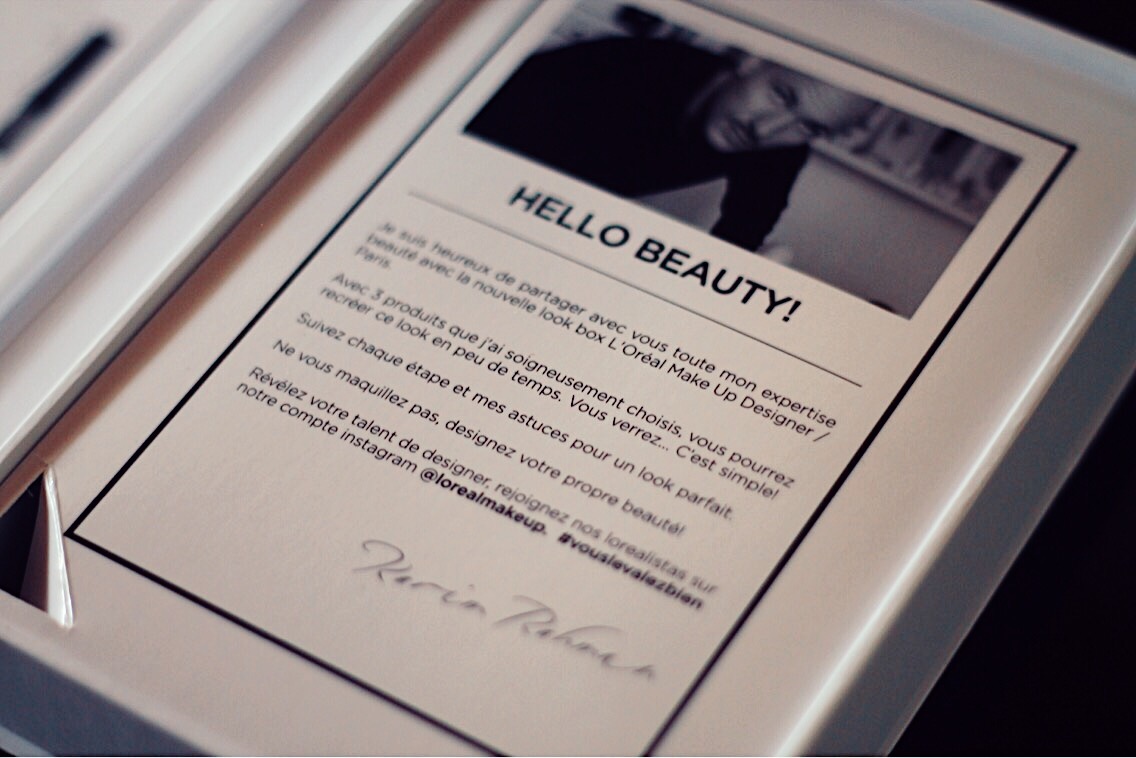 HELLO BEAUTY!
Je suis heureux de partager avec vous toute mon expertise
beauté avec la nouvelle look box L'Oréal Make Up Designer /
Paris.
Avec 3 produits que j'ai soigneusement choisis, vous pourrez
recréer ce look en peu de temps. Vous verrez... C'est simple!
Suivez chaque étape et mes astuces pour un look parfait.
Ne vous maquillez pas, designez votre propre beauté!
Révélez votre talent de designer, rejoignez nos lorealistas sur
notre compte instagram @lorealmakeup. #vouslevalezbien